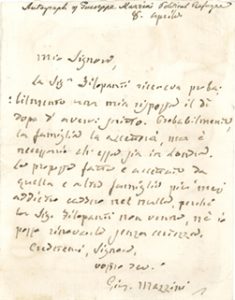 Autograph of Giuseppe Mazzini Political Refugee
8. Aprile
Mio Signore,
la Sigra Filopanti riceveva proba-
bilmente una mia risposta il dì
dopo d'avervi scritto. Probabilmente,
la famiglia la accetterà, ma è
necessario che essa sia in Londra.
La proposta fatta e accettata da
quella e altra famiglia più mesi
addietro cadde nel nulla, perchè
la Sigra Filopanti non venne, nè io
posso rinnovarla senza certezza.
Credetemi, Signore,
vostro dev.
Gius. Mazzini